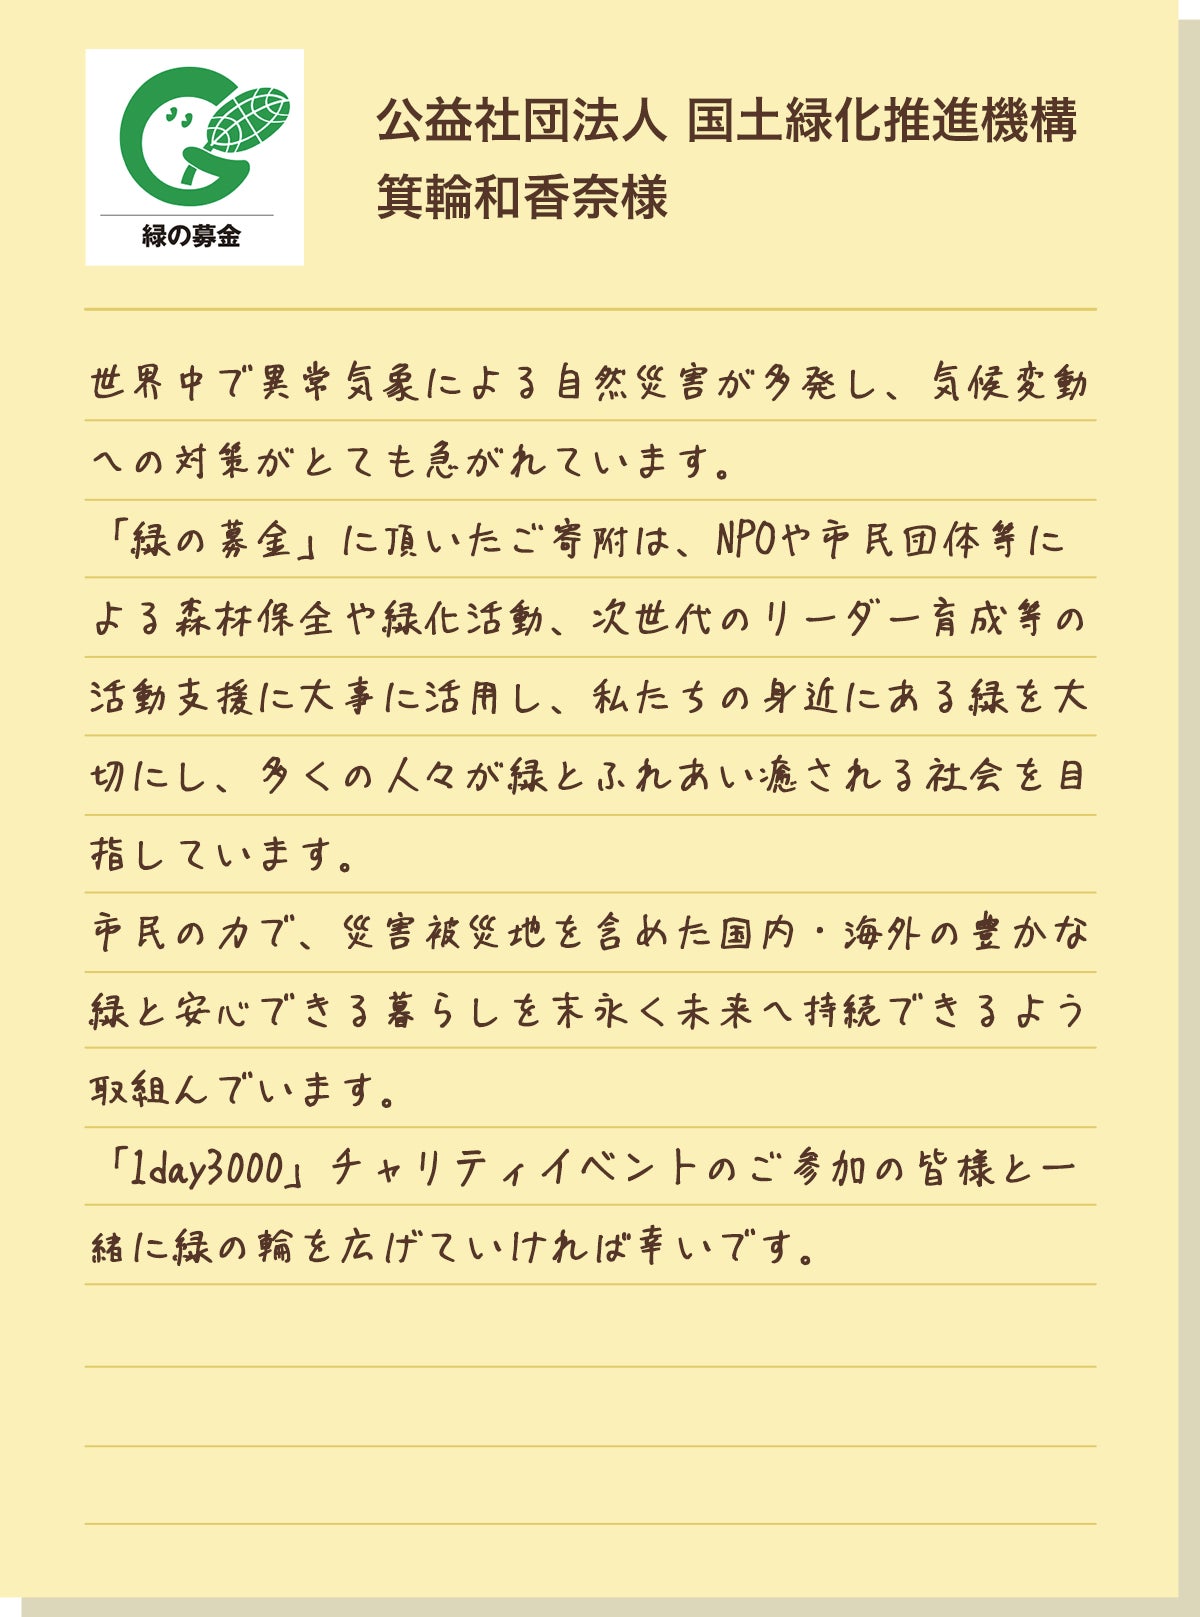 緑の募金
公益社団法人 国土緑化推進機構
箕輪和香奈様
世界中で異常気象による自然災害が多発し、気候変動
への対策がとても急がれています。
「緑の募金」に頂いたご寄附は、NPOや市民団体等に
よる森林保全や緑化活動、次世代のリーダー育成等の
活動支援に大事に活用し、私たちの身近にある緑を大
切にし、多くの人々が緑とふれあい癒される社会を目
指しています。
市民の力で、災害被災地を含めた国内・海外の豊かな
緑と安心できる暮らしを末永く未来へ持続できるよう
取組んでいます。
「1day3000」チャリティイベントのご参加の皆様と一
緒に緑の輪を広げていければ幸いです。